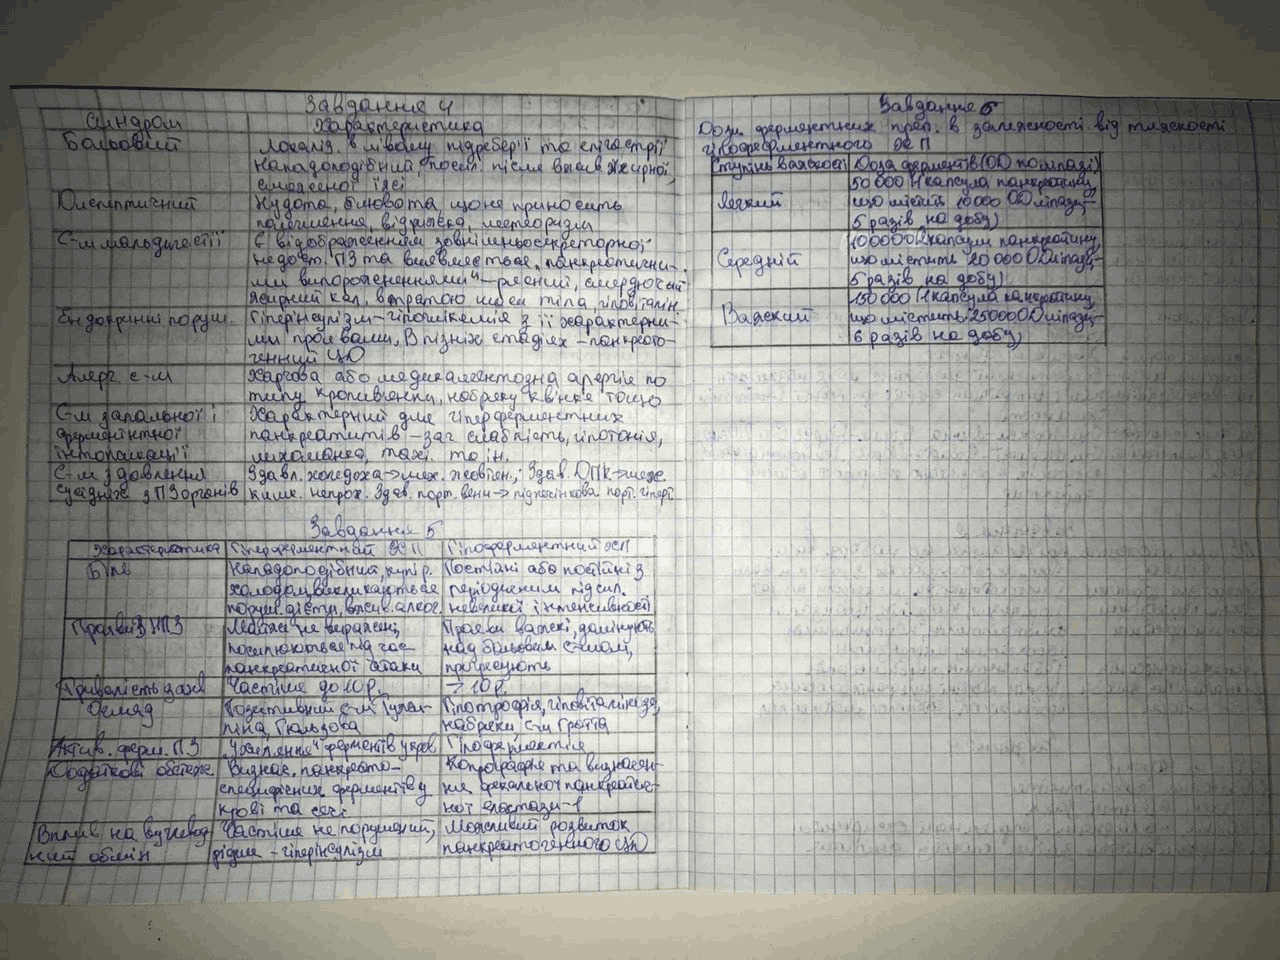 Завдання 4
Синдром Характеристика
Больовий Локаліз. в лівому підребер'ї та епігастрії
Нападоподібний, посил. після вжив. жирної,
смаженої їжі
Диспептичний Нудота, блювота, що не приносить
полегшення, відрижка, метеоризм
С-м мальдигестії Є відображенням зовнішньосекреторної
недост. ПЗ та виявляється „панкреатични-
ми випорожненнями" – рясний, смердючий
жирний кал, втратою маси тіла, гіповітамін.
Ендокринні поруш. Гіперінсулізм – гіпоглікемія з її характерни-
ми проявами. В пізніх стадіях – панкреато-
генний ЦД
Алерг. с-м Харчова або медикаментозна алергія по
типу кропив'янки, набряку Квінке тощо
С-м запальної і Характерний для гіперферментних
ферментної панкреатитів – заг. слабкість, гіпотонія,
інтоксикації лихоманка, тахі. та ін.
С-м здавлення Здавл. холедоха → мех. жовтян.; Здав. ДПК →
сусідніх з ПЗ органів киш. непрох. Здав. порт. вени → підпечінкова порт. гіперт.
Завдання 5
Характеристика Гіперферментний ХП Гіпоферментний ХП
Біль Нападоподібний, купір. Постійні або постійні з
холодом, викликаються періодичним підсил.
поруш. дієти, вжив. алког. невеликої інтенсивності
Прояви ЗНПЗ Майже не виражені, Прояви важкі, домінують
посилюються під час над больовим с-мом,
панкреатичної атаки прогресують
Тривалість захв Частіше до 10 р. ≥ 10 р.
Огляд Позитивний с-м Тужи-
ліна, Гюльзова Гіпотрофія, гіповітамінези,
набряки, с-м Гротта
Актив. ферм. ПЗ „Ухилення" ферментів у кров Гіпоферментія
Додаткові обстеж. Визнач. панкреато- Копрографія та визначен-
специфічних ферментів у ня фекальної панкреатич-
крові та сечі ної еластази-1
Вплив на вуглевод- Частіше не порушений, Можливий розвиток
ний обмін рідше – гіперінсулізм панкреатогенного ЦД
Завдання 6
Дози ферментних преп. в залежності від тяжкості
гіпоферментного ХП
Ступінь важкості Доза ферментів (ОД по ліпазі)
50 000 (1 капсула панкреатину,
Легкий що містить 10000 ОД ліпази –
5 разів на добу)
100000 (1 капсули панкреатину,
Середній що містить 20 000 ОД ліпази –
5 разів на добу)
150 000 (1 капсула панкреатину,
Важкий що містить 25000 ОД ліпази –
6 разів на добу)